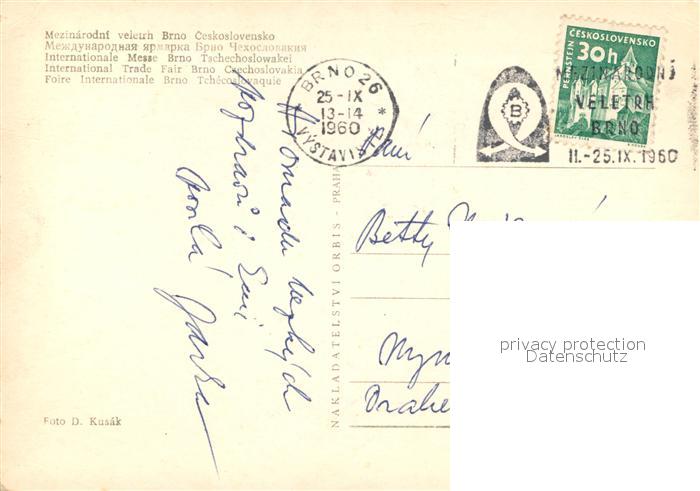 Mezinárodní veletrh Brno Československo
Международная ярмарка Брно Чехословакия
Internationale Messe Brno Tschechoslowakei
International Trade Fair Brno Czechoslovakia
Foire Internationale Brno Tchécoslovaquie
BRNO 26
25-IX
13-14
1960
VÝSTAVIŠTĚ
B
ČESKOSLOVENSKO
30h
PERNŠTEJN
MEZINÁRODNÍ
VELETRH
BRNO
11.-25.IX.1960
Hromadu hezkých
pozdravů
posílá
NAKLADATELSTVÍ ORBIS - PRAHA
Betty
privacy protection
Datenschutz
Foto D. Kusák